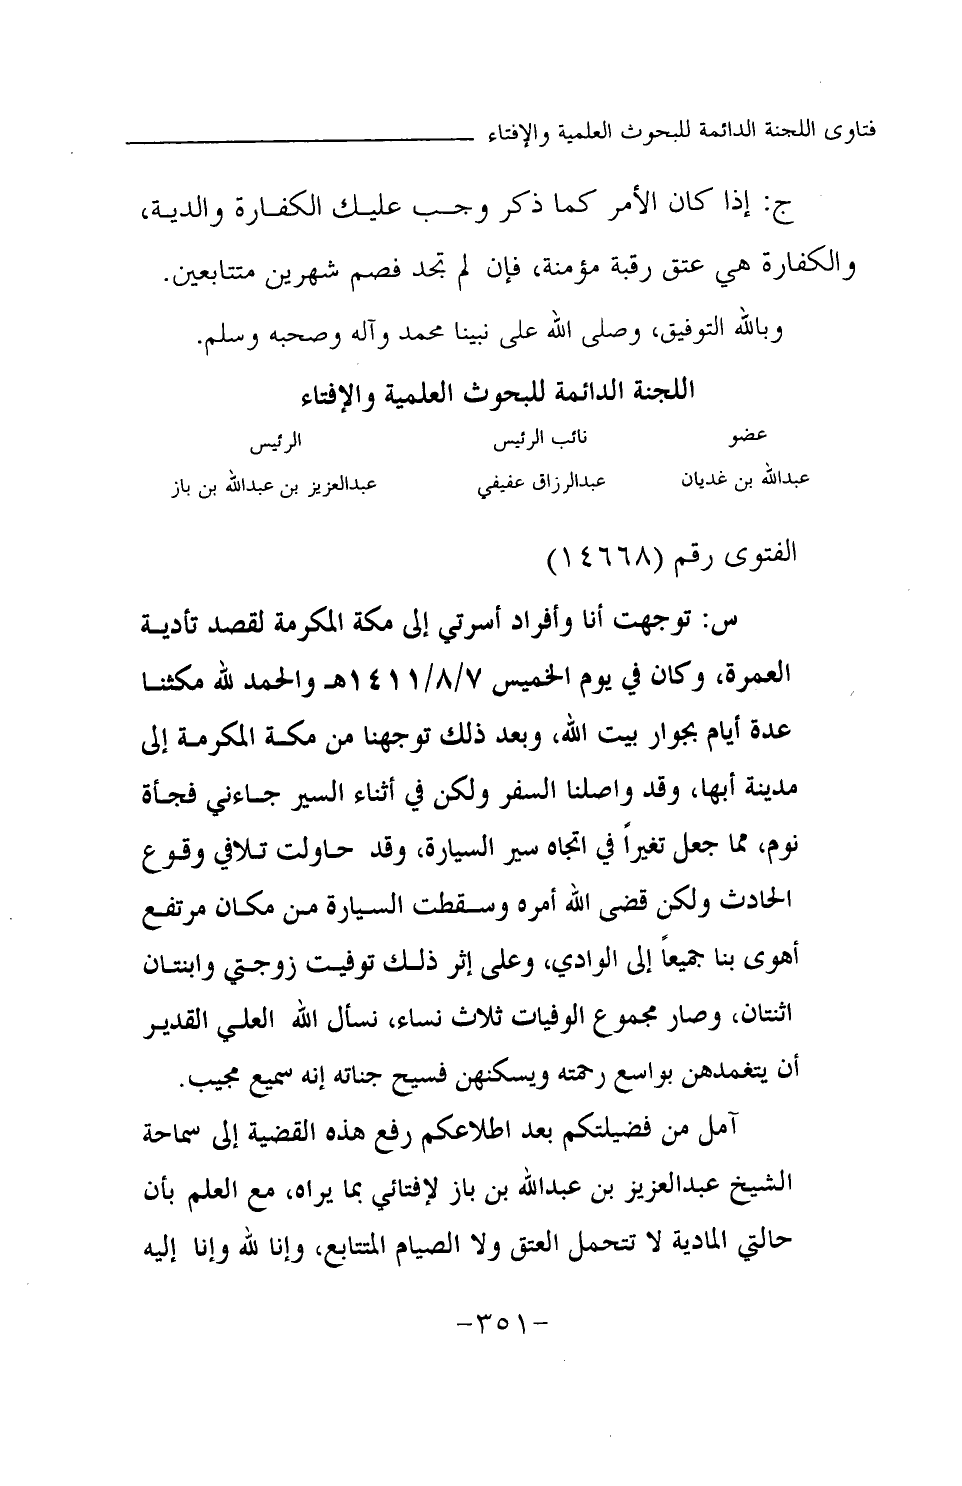 فتاوى اللجنة الدائمة للبحوث العلمية والإفتاء
ج: إذا كان الأمر كما ذكر وجب عليك الكفارة والدية،
والكفارة هي عتق رقبة مؤمنة، فإن لم تجد فصم شهرين متتابعين.
وبالله التوفيق، وصلى الله على نبينا محمد وآله وصحبه وسلم.
اللجنة الدائمة للبحوث العلمية والإفتاء
عضو نائب الرئيس الرئيس
عبدالله بن غديان عبدالرزاق عفيفي عبدالعزيز بن عبدالله بن باز
الفتوى رقم (١٤٦٦٨)
س: توجهت أنا وأفراد أسرتي إلى مكة المكرمة لقصد تأدية
العمرة، وكان في يوم الخميس ١٤١١/٨/٧هـ والحمد لله مكثنا
عدة أيام بجوار بيت الله، وبعد ذلك توجهنا من مكة المكرمة إلى
مدينة أبها، وقد واصلنا السفر ولكن في أثناء السير جاءني فجأة
نوم، مما جعل تغيراً في اتجاه سير السيارة، وقد حاولت تلافي وقوع
الحادث ولكن قضى الله أمره وسقطت السيارة من مكان مرتفع
أهوى بنا جميعاً إلى الوادي، وعلى إثر ذلك توفيت زوجتي وابنتان
اثنتان، وصار مجموع الوفيات ثلاث نساء، نسأل الله العلي القدير
أن يتغمدهن بواسع رحمته ويسكنهن فسيح جناته إنه سميع مجيب.
آمل من فضيلتكم بعد اطلاعكم رفع هذه القضية إلى سماحة
الشيخ عبدالعزيز بن عبدالله بن باز لإفتائي بما يراه، مع العلم بأن
حالتي المادية لا تتحمل العتق ولا الصيام المتتابع، وإنا لله وإنا إليه
-٣٥١-